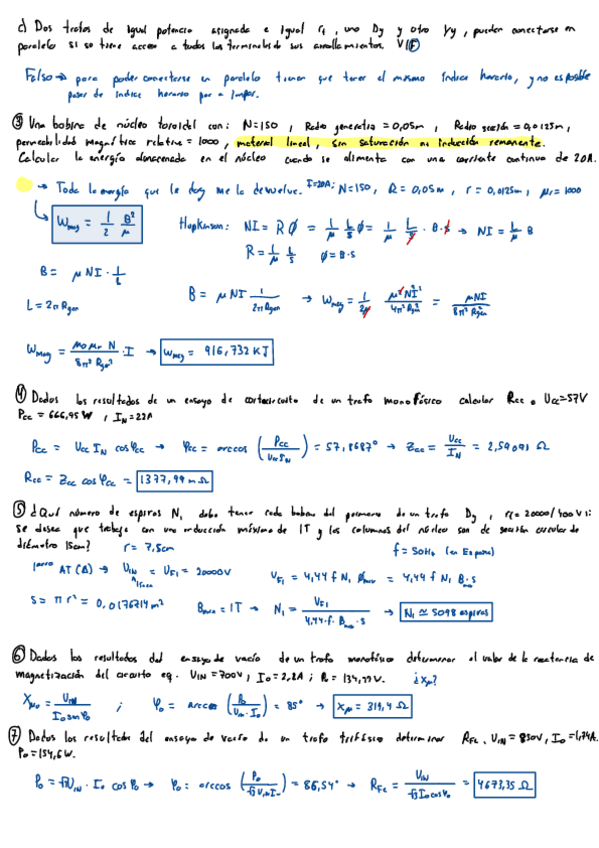 c) Dos trafos de igual potencia asignada e igual rt, uno Dy y otro Yy, pueden conectarse en
paralelo si se tiene acceso a todos los terminales de sus arrollamientos. V/F
Falso → para poder conectarse en paralelo tienen que tener el mismo índice horario, y no es posible
pasar de índice horario par a impar.
③ Una bobina de núcleo toroidal con: N=150, Radio generatriz = 0,05m, Radio sección = 0,0125m,
permeabilidad magnética relativa = 1000, material lineal, sin saturación ni inducción remanente.
Calcular la energía almacenada en el núcleo cuando se alimenta con una corriente continua de 20A.
→ Toda la energía que le doy me la devuelve. I=20A; N=150, R = 0,05m, r = 0,0125m, μr = 1000
Wmag = 1/2 B²/μ Hopkinson: NI = R Ø = 1/μ L/S Ø = 1/μ L/S · B·S → NI = L/μ B
R = 1/μ L/S Ø = B·S
B = μNI · 1/L
L = 2π Rgen B = μNI 1/2πRgen → Wmag = 1/2μ μ²N²I²/4π²Rgen² = μNI/8π²Rgen²
Wmag = μ0 μr N/8π² Rgen² · I → Wmag = 916,732 KJ
④ Dados los resultados de un ensayo de cortocircuito de un trafo monofásico calcular Rcc. Ucc=57V
Pcc = 666,95 W, IN=22A
Pcc = Ucc IN cosφcc → φcc = arccos (Pcc/Ucc IN) = 57,8687° → Zcc = Ucc/IN = 2,59091 Ω
Rcc = Zcc cosφcc = 1377,99 mΩ
⑤ ¿Qué número de espiras N1 debe tener cada bobina del primario de un trafo Dy, rt = 20000/400 V si
se desea que trabaje con una inducción máxima de 1T y las columnas del núcleo son de sección circular de
diámetro 15cm? r = 7,5cm f = 50Hz (en España)
AT (Δ) → U1N = UF1 = 20000V UF1 = 4,44 f N1 Ømax = 4,44 f N1 B·S
S = π r² = 0,0176714m² Bmax = 1T → N1 = UF1/4,44·f·Bmax·S → N1 ≃ 5098 espiras
⑥ Dados los resultados del ensayo de vacío de un trafo monofásico determinar el valor de la reactancia de
magnetización del circuito eq. U1N = 700V, I0 = 2,2A; P0 = 134,22 W. ¿Xμ?
Xμ = U1N/I0 senφ0 ; φ0 = arccos (P0/U1N·I0) = 85° → Xμ = 319,4 Ω
⑦ Dados los resultados del ensayo de vacío de un trafo trifásico determinar RFe. U1N = 830V, I0 = 1,74A.
P0 = 154,6W.
P0 = √3 U1N · I0 cosφ0 → φ0: arccos (P0/√3 U1N I0) = 86,54° → RFe = U1N/√3 I0 cosφ0 = 4673,35 Ω